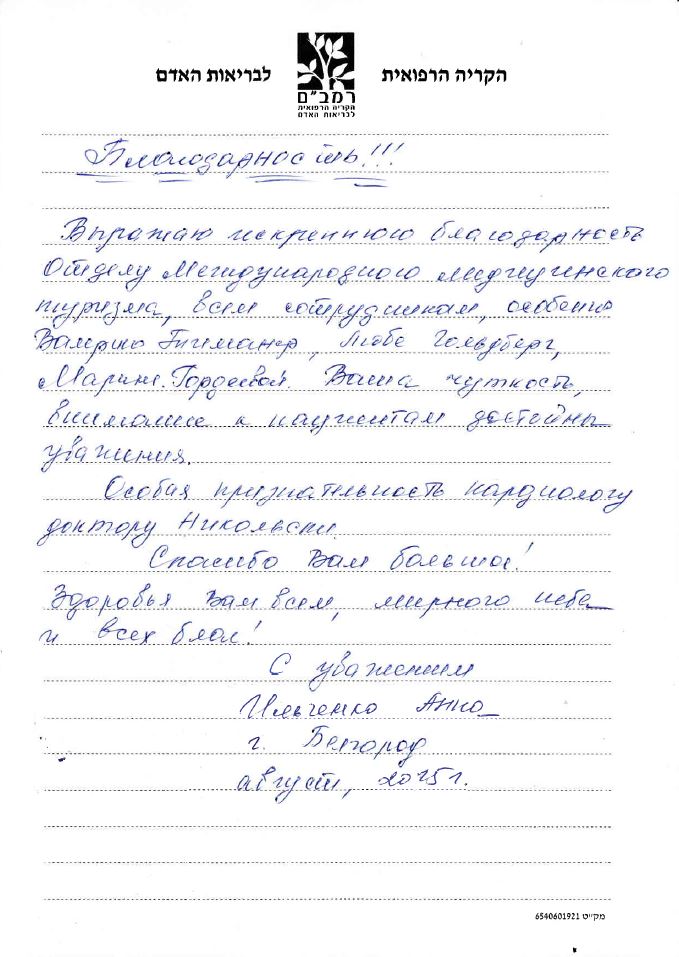 הקריה הרפואית לבריאות האדם
רמב"ם
הקריה הרפואית
לבריאות האדם
Благодарность!!!
Выражаю искреннюю благодарность
Отделу Международного медицинского
туризма, всем сотрудникам, особенно
Любе Гольдберг,
Марине Гордеевой. Ваша чуткость,
внимание к пациентам достойны
уважения.
Особая признательность кардиологу
доктору Никольски.
Спасибо Вам большое!
Здоровья Вам всем, мирного неба
и всех благ!
С уважением
Ильченко Анна
г. Белгород
август, 2015г.
מק״ט 6540601921